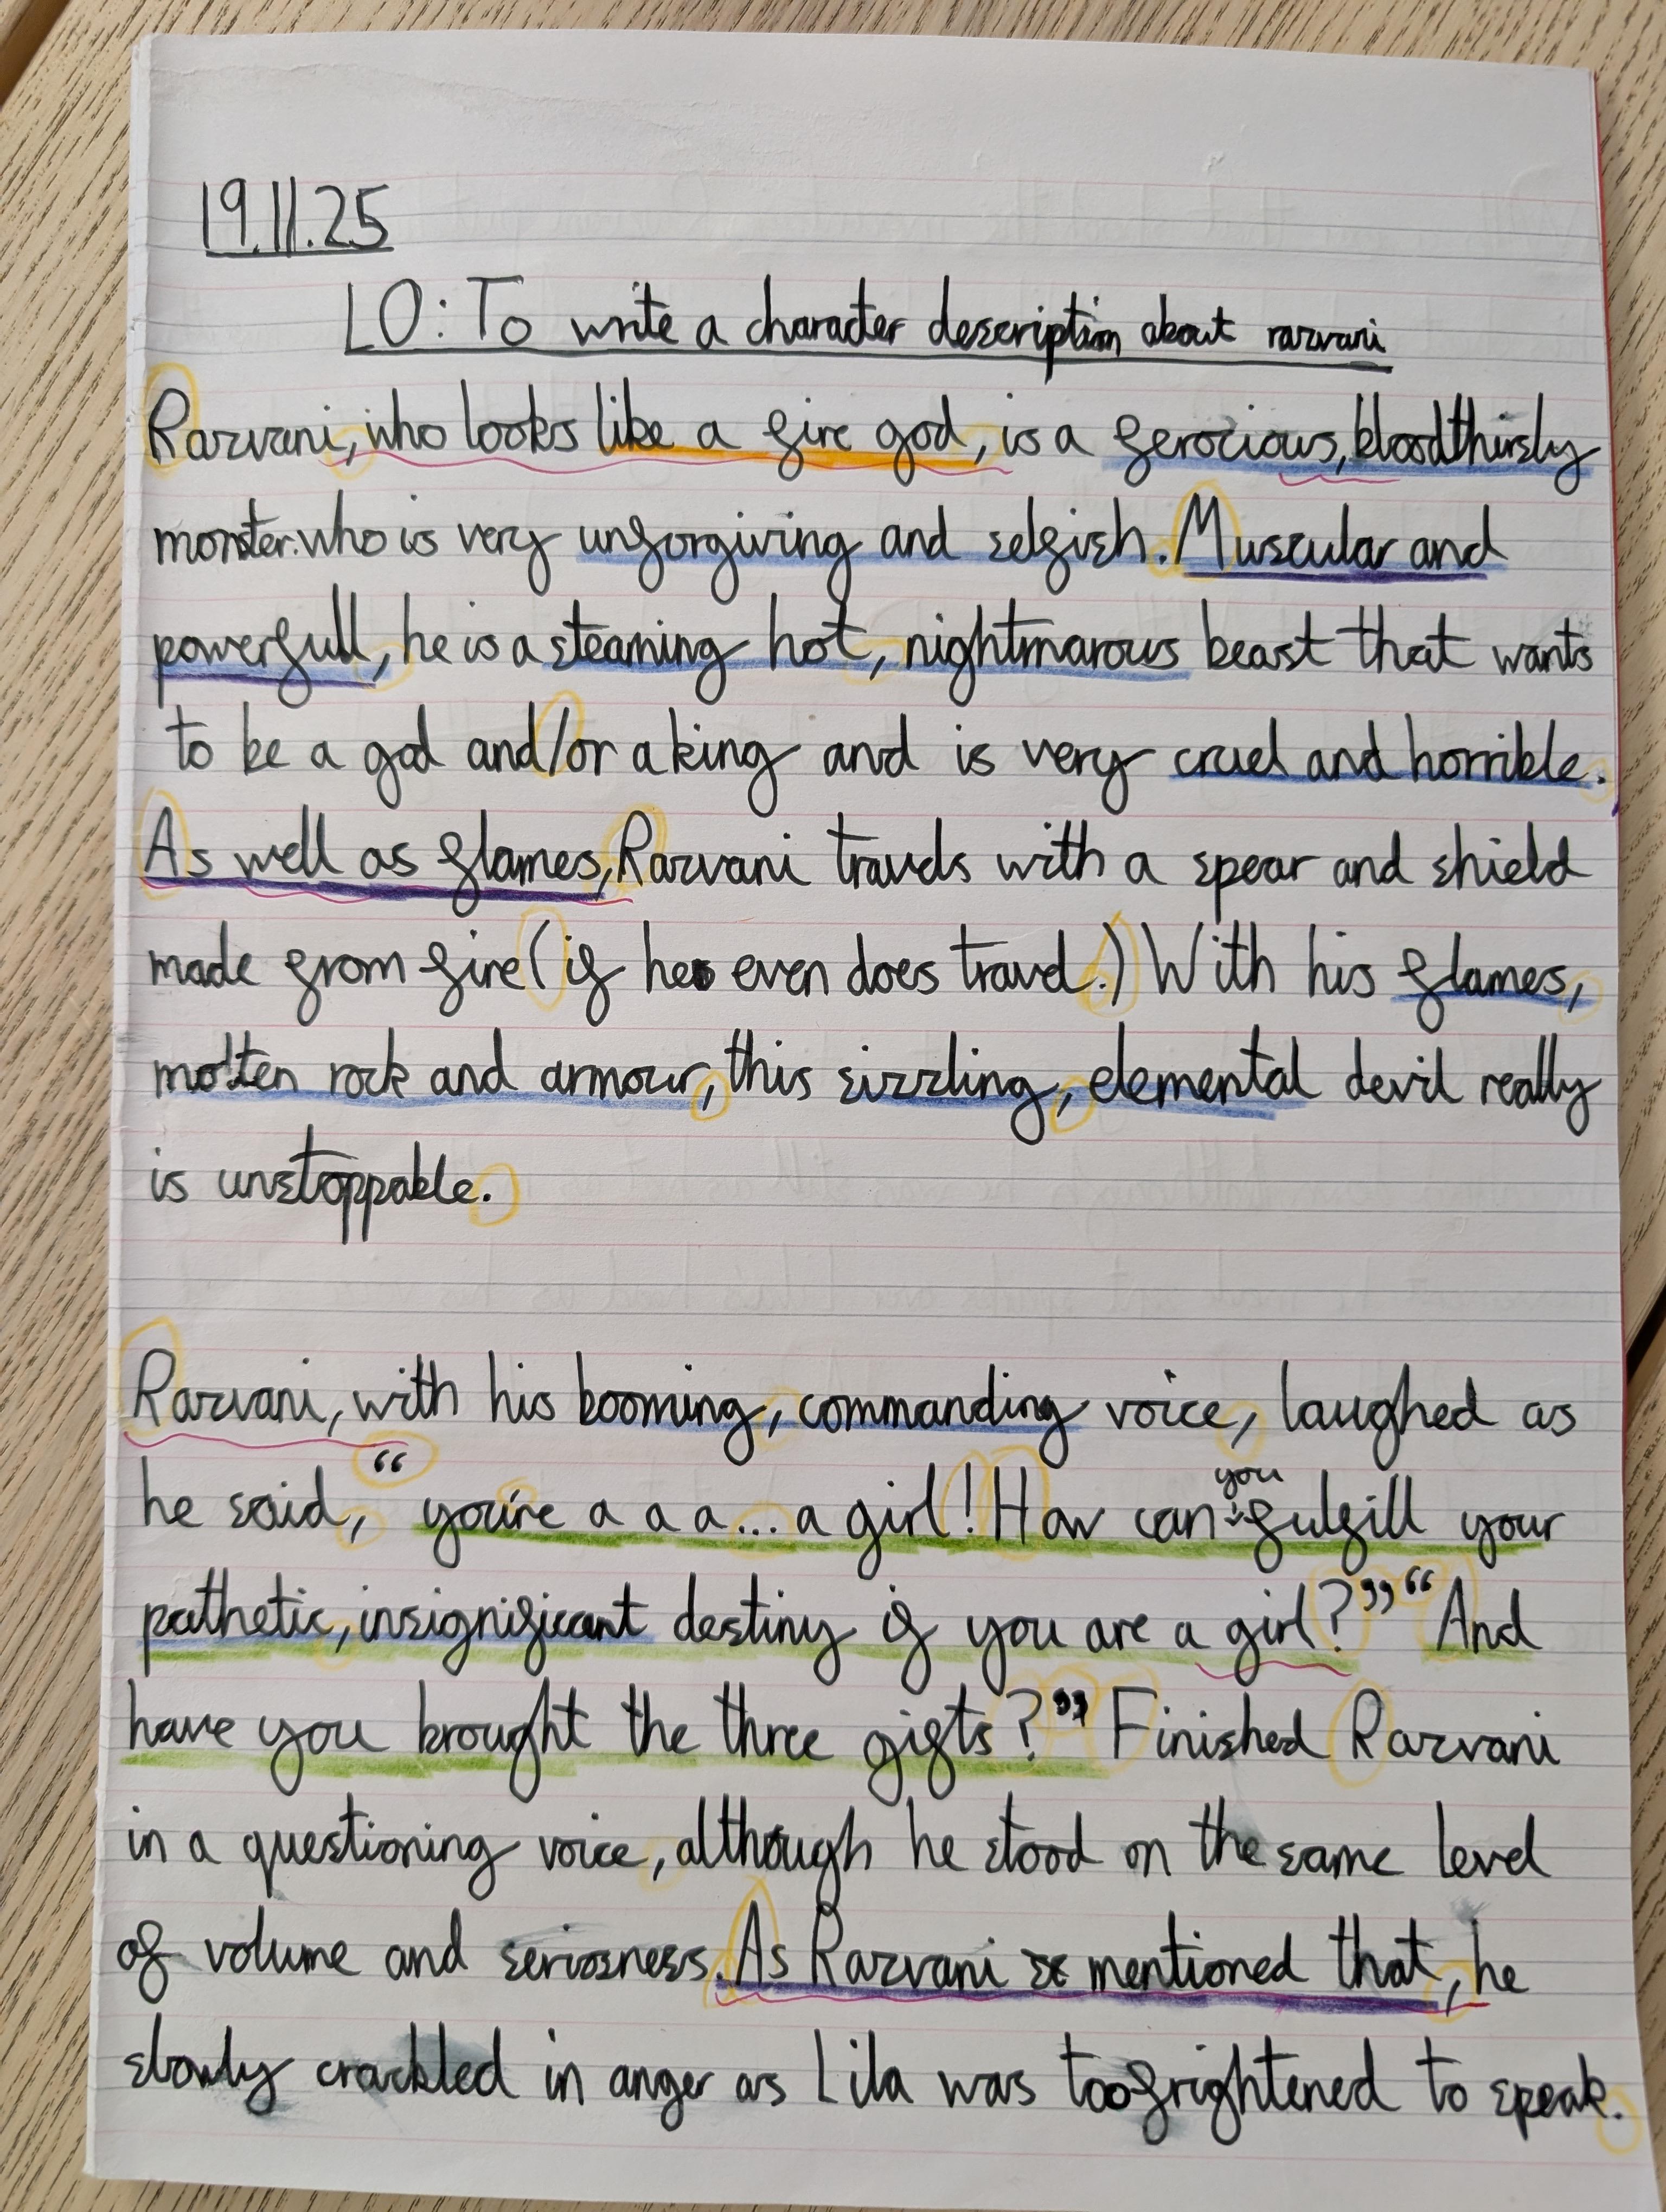 19.11.25
LO: To write a character description about razvani
Razvani, who looks like a fire god, is a ferocious, bloodthirsty
monster. who is very unforgiving and selfish. Muscular and
powerfull, he is a steaming hot, nightmarous beast that wants
to be a god and/or a king and is very cruel and horrible.
As well as flames, Razvani travels with a spear and shield
made from fire (if he even does travel.) With his flames,
molten rock and armour, this sizzling, elemental devil really
is unstoppable.
Razvani, with his booming, commanding voice, laughed as
he said, “you're a a a... a girl! How can you fulfill your
pathetic, insignificant destiny if you are a girl?” “And
have you brought the three gifts?” Finished Razvani
in a questioning voice, although he stood on the same level
of volume and seriosness. As Razvani mentioned that, he
slowly crackled in anger as Lila was too frightened to speak.